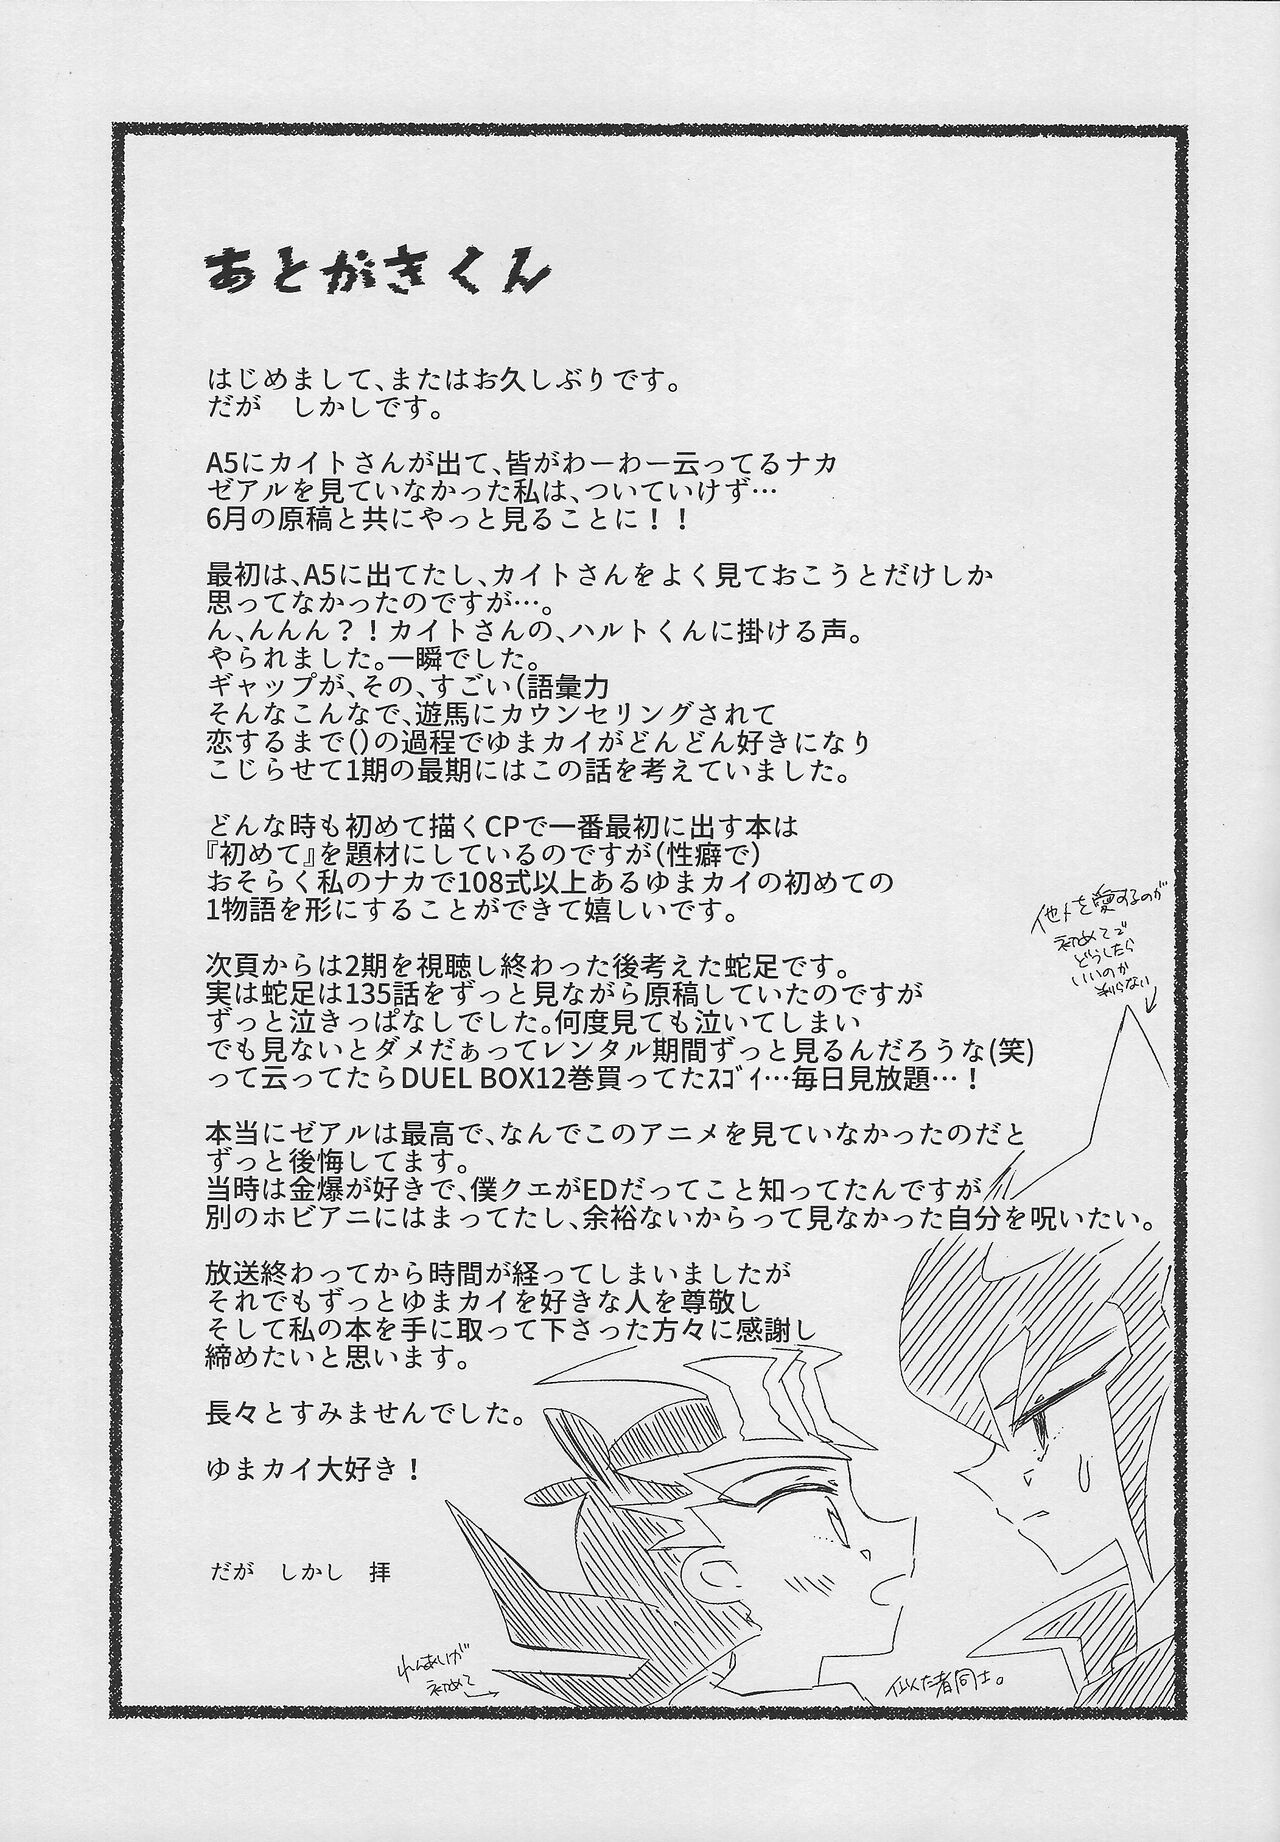 あとがきくん
はじめまして、またはお久しぶりです。
だが　しかしです。
A5にカイトさんが出て、皆がわーわー云ってるナカ
ゼアルを見ていなかった私は、ついていけず…
6月の原稿と共にやっと見ることに！！
最初は、A5に出てたし、カイトさんをよく見ておこうとだけしか
思ってなかったのですが…。
ん、んんん？！カイトさんの、ハルトくんに掛ける声。
やられました。一瞬でした。
ギャップが、その、すごい（語彙力
そんなこんなで、遊馬にカウンセリングされて
恋するまで()の過程でゆまカイがどんどん好きになり
こじらせて1期の最期にはこの話を考えていました。
どんな時も初めて描くCPで一番最初に出す本は
『初めて』を題材にしているのですが（性癖で）
おそらく私のナカで108式以上あるゆまカイの初めての
1物語を形にすることができて嬉しいです。
次頁からは2期を視聴し終わった後考えた蛇足です。
実は蛇足は135話をずっと見ながら原稿していたのですが
ずっと泣きっぱなしでした。何度見ても泣いてしまい
でも見ないとダメだぁってレンタル期間ずっと見るんだろうな(笑)
って云ってたらDUEL BOX12巻買ってたｽｺﾞｲ…毎日見放題…！
本当にゼアルは最高で、なんでこのアニメを見ていなかったのだと
ずっと後悔してます。
当時は金爆が好きで、僕クエがEDだってこと知ってたんですが
別のホビアニにはまってたし、余裕ないからって見なかった自分を呪いたい。
放送終わってから時間が経ってしまいましたが
それでもずっとゆまカイを好きな人を尊敬し
そして私の本を手に取って下さった方々に感謝し
締めたいと思います。
長々とすみませんでした。
ゆまカイ大好き！
だが　しかし　拝
他人を愛するのが
初めてで
どうしたら
いいのか
判らない
れんあいが
初めて
似た者同士。